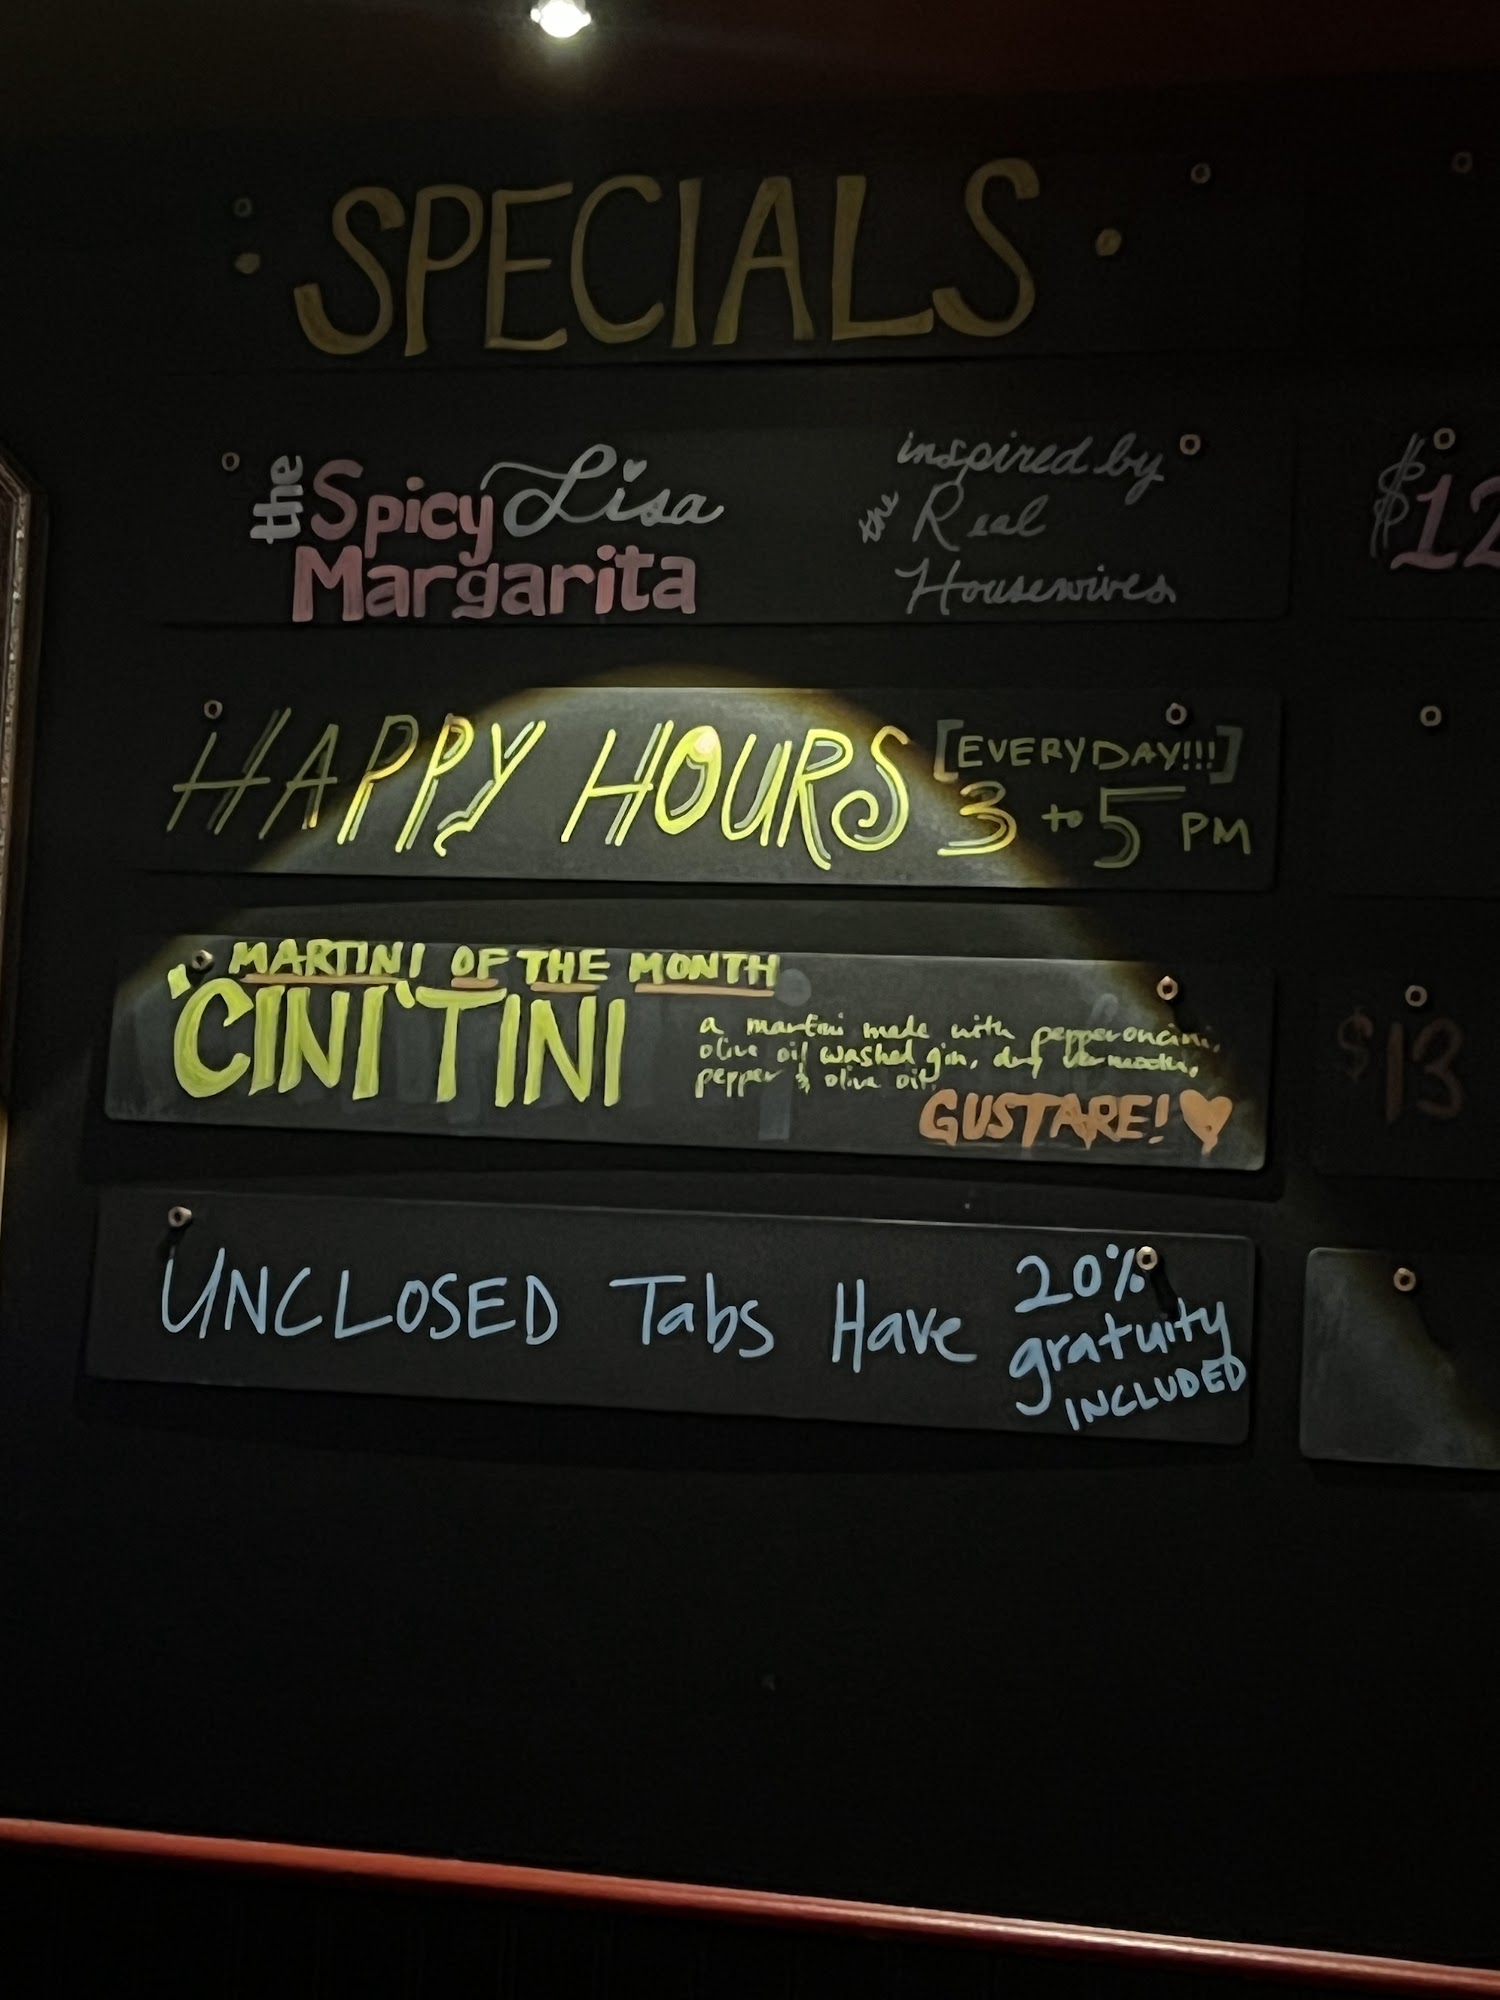 SPECIALS
the Spicy Lisa
Margarita
inspired by
the Real
Housewives
$12
HAPPY HOURS
[EVERYDAY!!!]
3 to 5 PM
MARTINI OF THE MONTH
'CINI'TINI
a martini made with pepperoncini,
olive oil washed gin, dry vermouth,
pepper & olive oil.
GUSTARE!
$13
UNCLOSED Tabs Have
20%
gratuity
INCLUDED